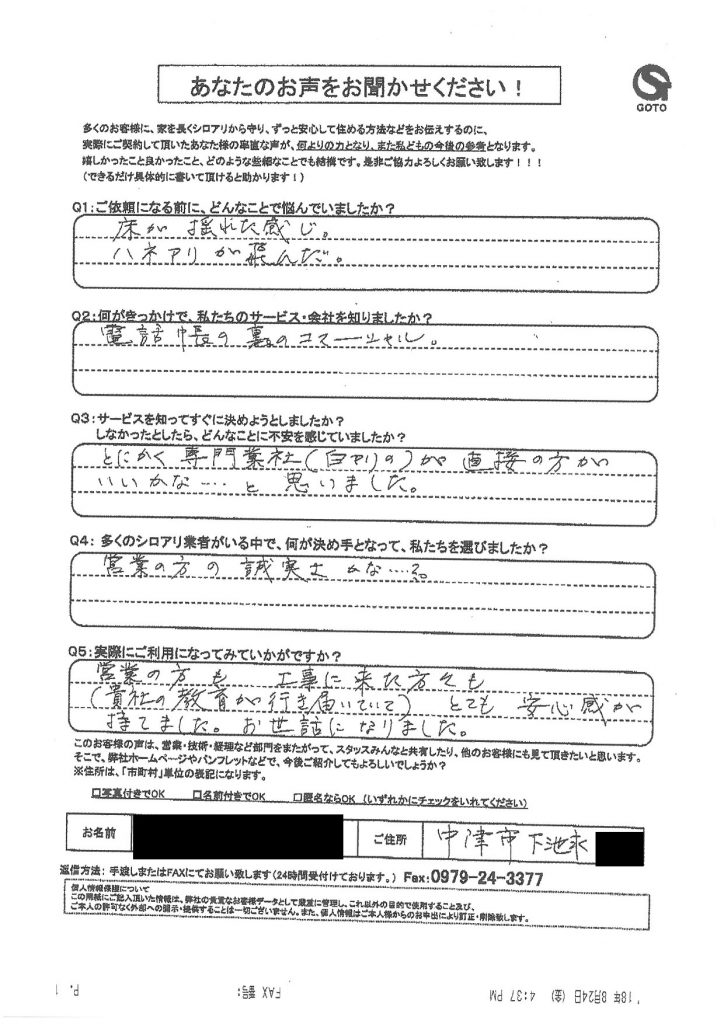 あなたのお声をお聞かせください！
GOTO
多くのお客様に、家を長くシロアリから守り、ずっと安心して住める方法などをお伝えするのに、
実際にご契約して頂いたあなた様の率直な声が、何よりの力となり、また私どもの今後の参考となります。
嬉しかったこと良かったこと、どのような些細なことでも結構です。是非ご協力よろしくお願い致します！！！
（できるだけ具体的に書いて頂けると助かります！）
Q1：ご依頼になる前に、どんなことで悩んでいましたか？
床が 揺れた感じ。
ハネアリが飛んだ。
Q2：何がきっかけで、私たちのサービス・会社を知りましたか？
電話帳の裏のコマーシャル。
Q3：サービスを知ってすぐに決めようとしましたか？
しなかったとしたら、どんなことに不安を感じていましたか？
とにかく専門業社（白アリの）が 直接の方が
いいかな…. と 思いました。
Q4： 多くのシロアリ業者がいる中で、何が決め手となって、私たちを選びましたか？
営業の方の 誠実さ かな…..?。
Q5：実際にご利用になってみていかがですか？
営業の方も 工事に来た方々も
（貴社の教育が行き届いていて） とても 安心感が
持てました。お世話になりました。
このお客様の声は、営業・技術・経理など部門をまたがって、スタッスみんなと共有したり、他のお客様にも見て頂きたいと思います。
そこで、弊社ホームページやパンフレットなどで、今後ご紹介してもよろしいでしょうか？
※住所は、「市町村」単位の表記になります。
□写真付きでOK □名前付きでOK □匿名ならOK （いずれかにチェックをいれてください）
お名前 ご住所 中津市下池永
返信方法： 手渡しまたはFAXにてお願い致します（24時間受付けております。） Fax：0979-24-3377
個人情報保護について
この用紙にご記入頂いた情報は、弊社の貴重なお客様データとして厳重に管理し、これ以外の目的で使用すること及び、
ご本人の許可なく外部への開示・提供することは一切ございません。また、個人情報はご本人様からのお申出により訂正・削除致します。
'18年8月24日（金） 4:37 PM FAX 番号: P. 1